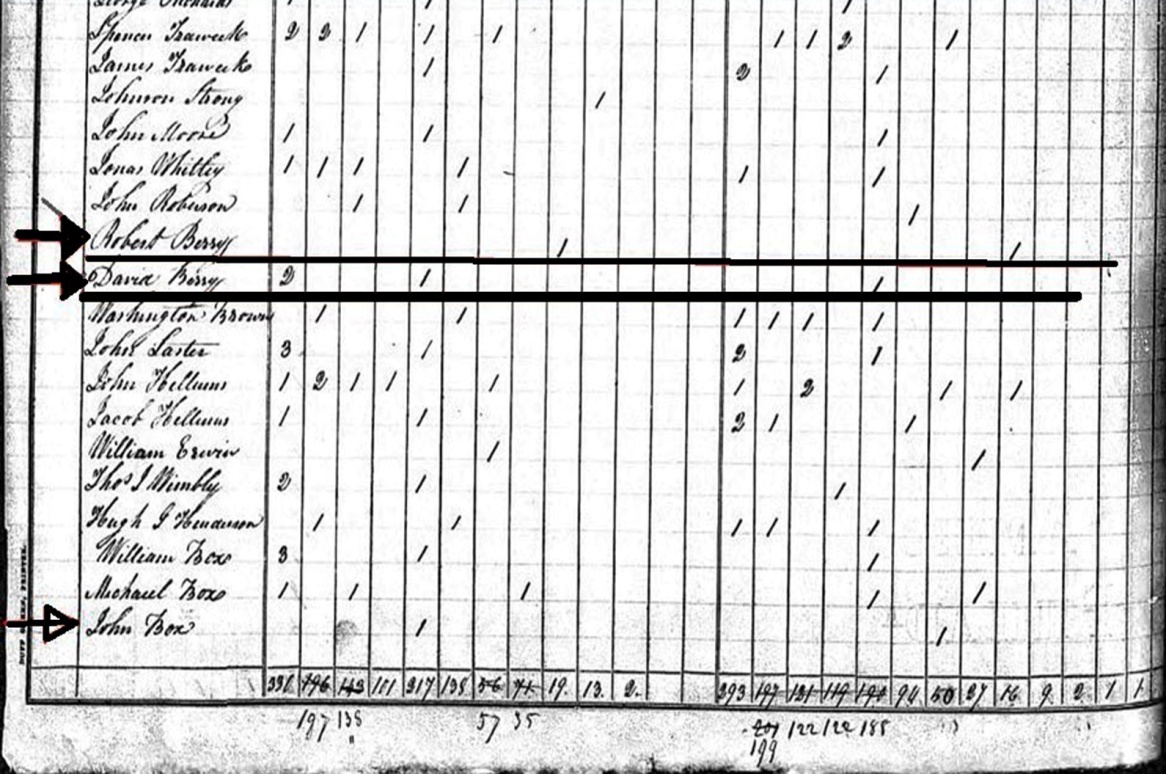 George
Spencer Traweek 2 2 1 1 1 1 1 2 1
James Traweek 1 2 1
Johnson Strong 1
John Moore 1 1 1
Jonas Whitley 1 1 1 1 1 1
John Roberson 1 1 1
Robert Berry 1 1
David Berry 2 1 1
Washington Brown 1 1 1 1 1 1
John Laster 3 1 2 1
John Hellums 1 2 1 1 1 1 2 1 1
Jacob Hellums 1 1 2 1 1
William Erwin 1 1
Thos J Wimbly 2 1 1
Hugh G Henderson 1 1 1 1 1
William Box 3 1 1
Michael Box 1 1 1 1 1
John Box 1 1
331 196 101 217 138 56 71 19. 13. 2. 293 197 121 119 191 94 50 27 16 9 2 1 1
197 138 57 35 201 122 122 188
199